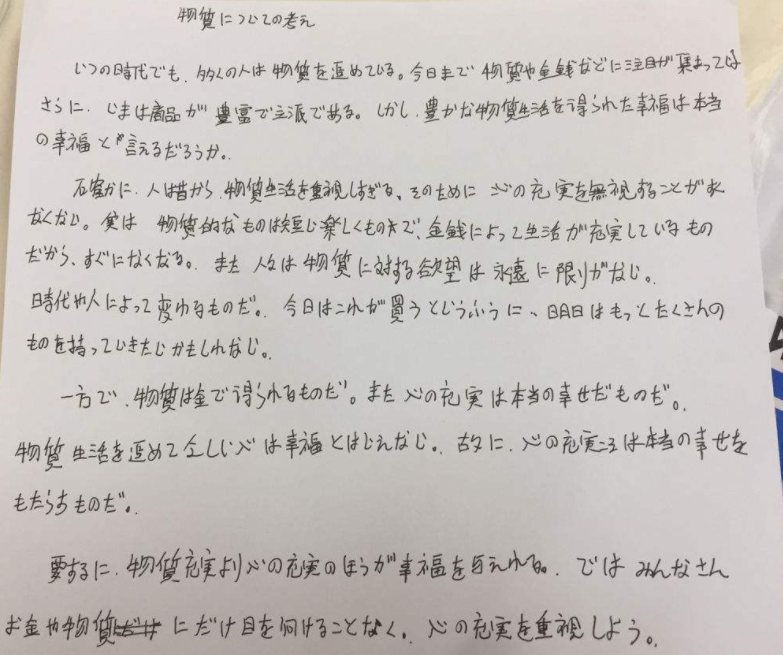 物質についての考え
いつの時代でも、多くの人は物質を追めている。今日まで物質や金銭などに注目が集まってる
さらに、いまは商品が豊富で立派である。しかし、豊かな物質生活を得られた幸福は本当
の幸福と言えるだろうか。
確かに、人は昔から、物質生活を重視しすぎる、そのために心の充実を無視することが少
なくない。実は物質的なものは短い楽しくもので、金銭によって生活が充実しているもの
だから、すぐになくなる。また人々は物質に対する欲望は永遠に限りがない。
時代や人によって変ゆるものだ。今日はこれが買うというふうに、明日はもっとたくさんの
ものを持っていきたいかもしれない。
一方で、物質は金で得られるものだ。また心の充実は本当の幸せだものだ。
物質生活を追めて全しい心は幸福とはいえない。故に、心の充実こそは本当の幸せを
もたらすものだ。
要するに、物質充実より心の充実のほうが幸福を与えれる。ではみんなさん
お金や物質にだけ目を向けることなく。心の充実を重視しよう。